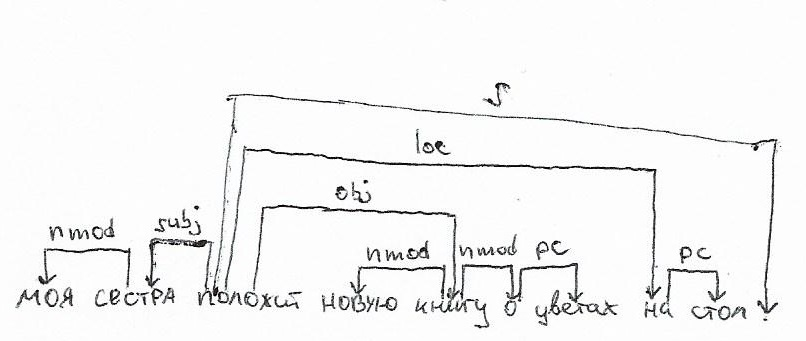 S
loc
obj
nmod subj nmod nmod pc pc
моя сестра положит новую книгу о цветах на стол .